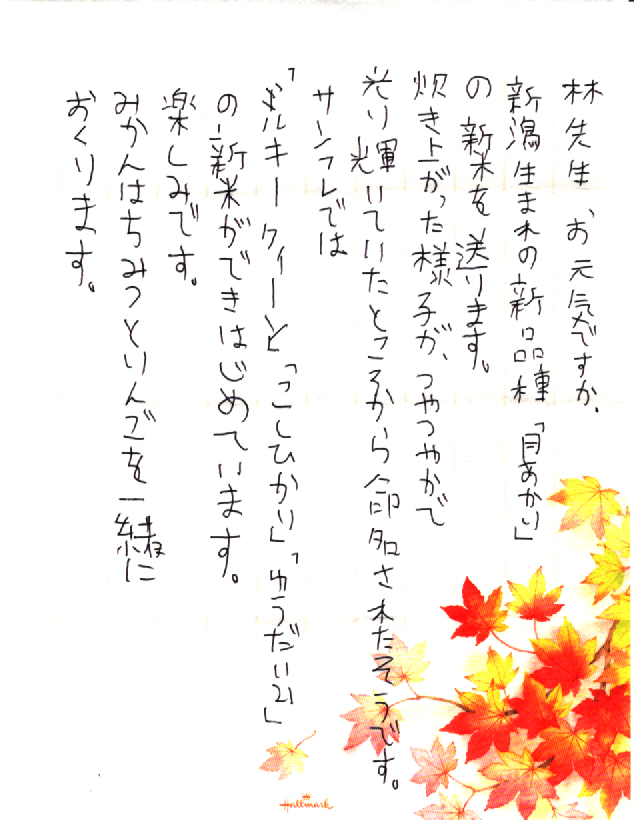 林先生 お元気ですか、
新潟生まれの新品種「月あかり」
の新米を送ります。
炊き上がった様子が、つやつやかで
光り輝いていたところから命名されたそうです。
サンフレでは
「ミルキークィーン」「こしひかり」「ゆうだい21」
の新米ができはじめています。
楽しみです。
みかんはちみつとりんごを一緒に
おくります。
Hallmark